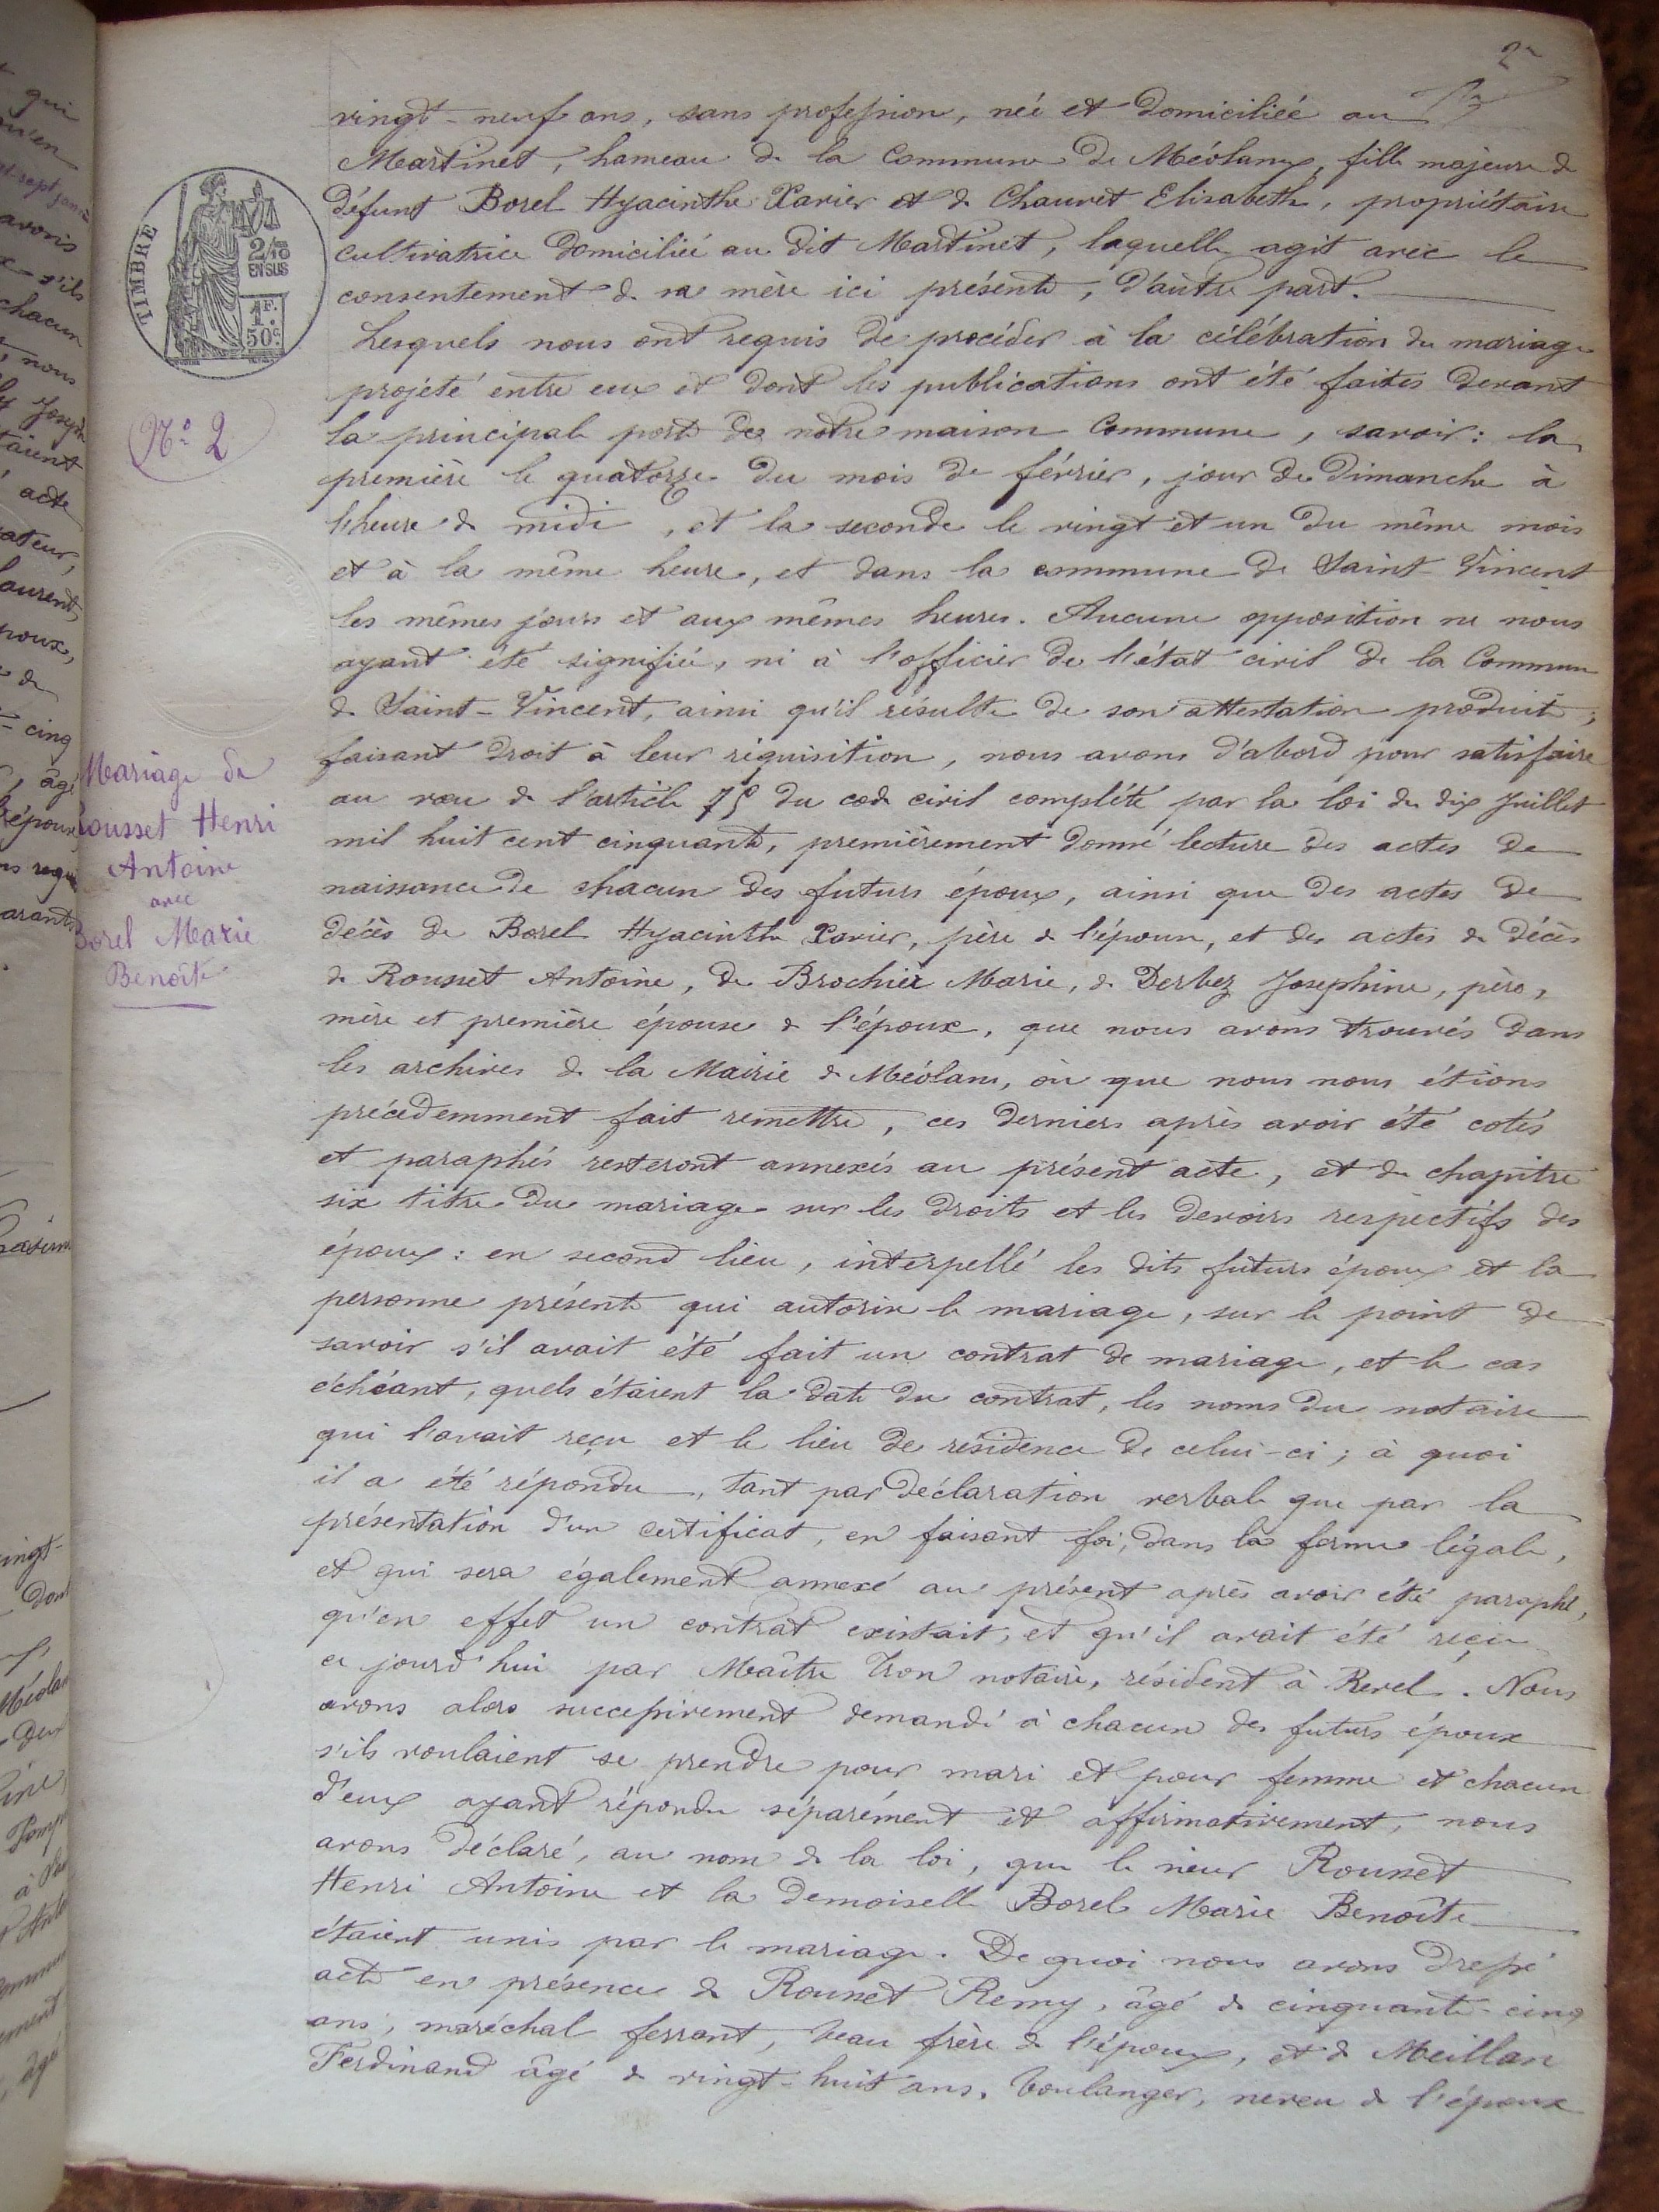 2
vingt-neuf ans, sans profession, née et domiciliée au
Martinet, hameau de la Commune de Méolans, fille majeure de
défunt Borel Hyacinthe Xavier et de Chauvet Elisabeth, propriétaire
cultivatrice domiciliée au dit Martinet, laquelle agit avec le
consentement de sa mère ici présente, d'autre part.
Lesquels nous ont requis de procéder à la célébration du mariage
projeté entre eux et dont les publications ont été faites devant
la principale porte de notre maison Commune, savoir: la
première le quatorze du mois de février, jour de Dimanche à
l'heure de midi, et la seconde le vingt et un du même mois
et à la même heure, et dans la commune de Saint-Vincent
les mêmes jours et aux mêmes heures. Aucune opposition ne nous
ayant été signifiée, ni à l'officier de l'état civil de la Commune
de Saint-Vincent, ainsi qu'il résulte de son attestation produite;
faisant droit à leur réquisition, nous avons d'abord pour satisfaire
au vœu de l'article 75 du code civil complété par la loi du dix Juillet
mil huit cent cinquante, premièrement donné lecture des actes de
naissance de chacun des futurs époux, ainsi que des actes de
décès de Borel Hyacinthe Xavier, père de l'épouse, et des actes de décès
de Rousset Antoine, de Brochier Marie, de Derbez Josephine, père,
mère et première épouse de l'époux, que nous avons trouvés dans
les archives de la Mairie de Méolans, où que nous nous étions
précédemment fait remettre, ces derniers après avoir été cotés
et paraphés resteront annexés au présent acte, et du chapitre
six titre du mariage sur les droits et les devoirs respectifs des
époux: en second lieu, interpellé les dits futurs époux et la
personne présente qui autorise le mariage, sur le point de
savoir s'il avait été fait un contrat de mariage, et le cas
échéant, quels étaient la date du contrat, les noms du notaire
qui l'avait reçu et le lieu de résidence de celui-ci; à quoi
il a été répondu, tant par déclaration verbale que par la
présentation d'un certificat, en faisant foi, dans la forme légale,
et qui sera également annexé au présent après avoir été paraphé,
qu'en effet un contrat existait, et qu'il avait été reçu
ce jourd'hui par Maître Tron notaire, résident à Revel. Nous
avons alors successivement demandé à chacun des futurs époux
s'ils voulaient se prendre pour mari et pour femme et chacun
d'eux ayant répondu séparément et affirmativement, nous
avons déclaré, au nom de la loi, que le sieur Rousset
Henri Antoine et la demoiselle Borel Marie Benoîte
étaient unis par le mariage. De quoi nous avons dressé
acte en présence de Rousset Remy, âgé de cinquante-cinq
ans, maréchal ferrant, beau frère de l'époux, et de Meillan
Ferdinand âgé de vingt-huit ans, boulanger, neveu de l'époux
TIMBRE
2/10
EN SUS
1F.
50c.
N° 2
Mariage de
Rousset Henri
Antoine
avec
Borel Marie
Benoîte